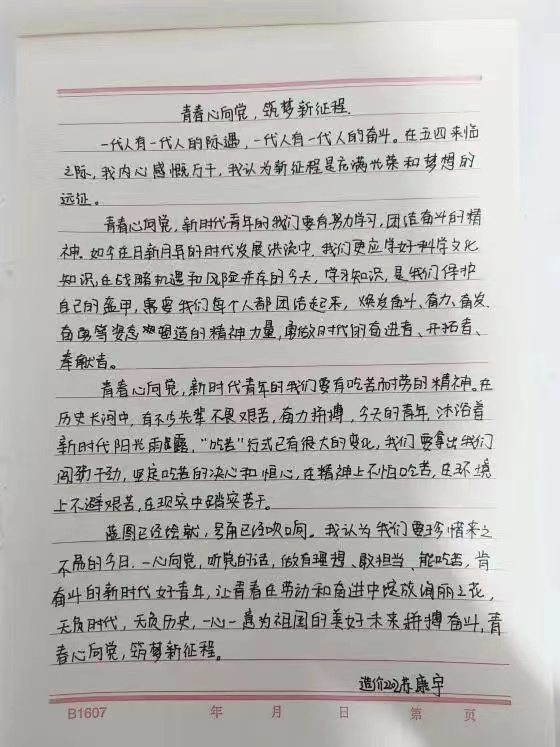 青春心向党，筑梦新征程.
一代人有一代人的际遇，一代人有一代人的奋斗。在五四来临
之际，我内心感慨万千，我认为新征程是充满光荣和梦想的
远征。
青春心向党，新时代青年的我们要有努力学习，团结奋斗的精
神。如今在日新月异的时代发展洪流中，我们更应学好科学文化
知识，在战略机遇和风险并存的今天，学习知识，是我们保护
自己的盔甲，需要我们每个人都团结起来，焕发奋斗、奋力、奋发、
奋勇等姿态塑造的精神力量，勇做时代的奋进者、开拓者、
奉献者。
青春心向党，新时代青年的我们要有吃苦而耐劳的精神。在
历史长河中，有不少先辈不畏艰苦，奋力拼搏，今天的青年，沐浴着
新时代阳光雨露，“吃苦”形式已有很大的变化，我们要拿出我们
闯劲干劲，坚定吃苦的决心和恒心，在精神上不怕吃苦，在环境
上不避艰苦，在现实中踏实苦干。
蓝图已经绘就，号角已经吹响。我认为我们要珍惜来之
不易的今日，一心向党，听党的话，做有理想、敢担当、能吃苦，肯
奋斗的新时代好青年，让青春在劳动和奋进中绽放绚丽之花，
无负时代，无负历史，一心一意为祖国的美好未来拼搏奋斗，青
春心向党，筑梦新征程。
造价 苏康宇
B1607 年 月 日 第 页